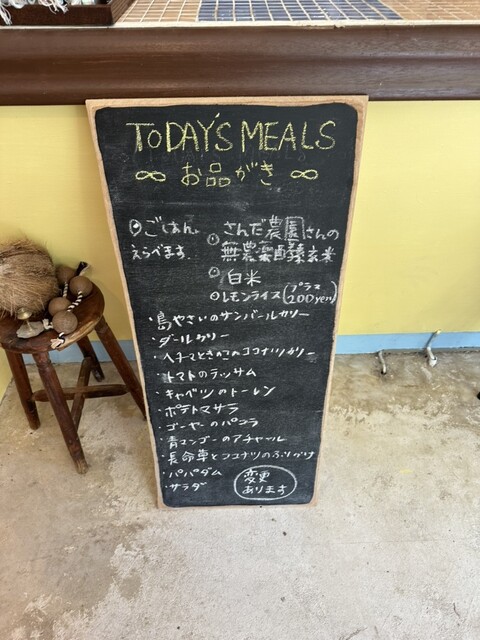 TODAY'S MEALS
∞ お品がき ∞
◎ごはん
えらべます
◎さんだ農園さんの
無農薬酵素玄米
◎白米
◎レモンライス(プラス200yen)
・島やさいのサンバールカリー
・ダールカリー
・ヘチマときのこのココナツカリー
・トマトのラッサム
・キャベツのトーレン
・ポテトマサラ
・ゴーヤーのパコラ
・青マンゴーのアチャール
・長命草とココナツのふりかけ
・パパダム
・サラダ
変更
あります